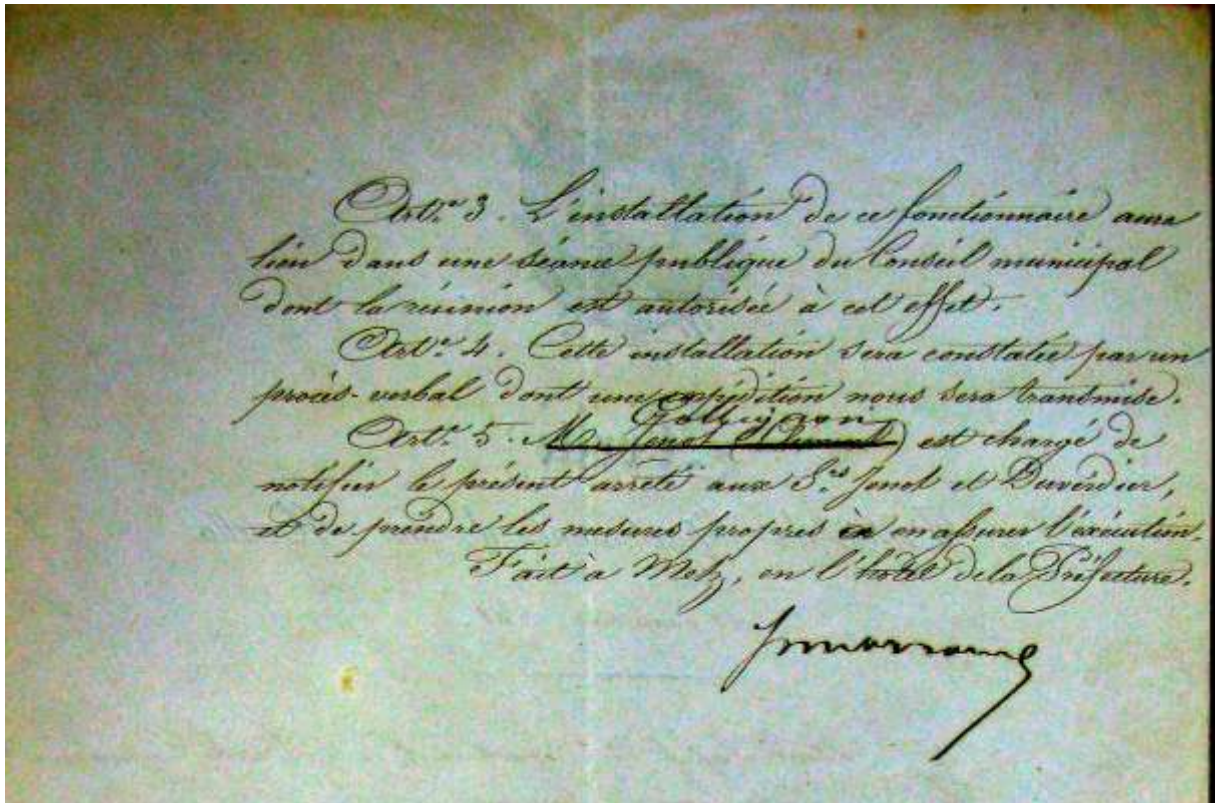 Art.e 3. L'installation de ce fonctionnaire aura
lieu dans une séance publique du Conseil municipal
dont la réunion est autorisée à cet effet.
Art.e 4. Cette installation sera constatée par un
procès-verbal dont une expédition nous sera transmise.
Art.e 5. M. Jonot est chargé de
notifier le présent arrêté aux Srs Jonot et Duverdier,
et de prendre les mesures propres à en assurer l'exécution.
Fait à Metz, en l'hotel de la Préfecture.